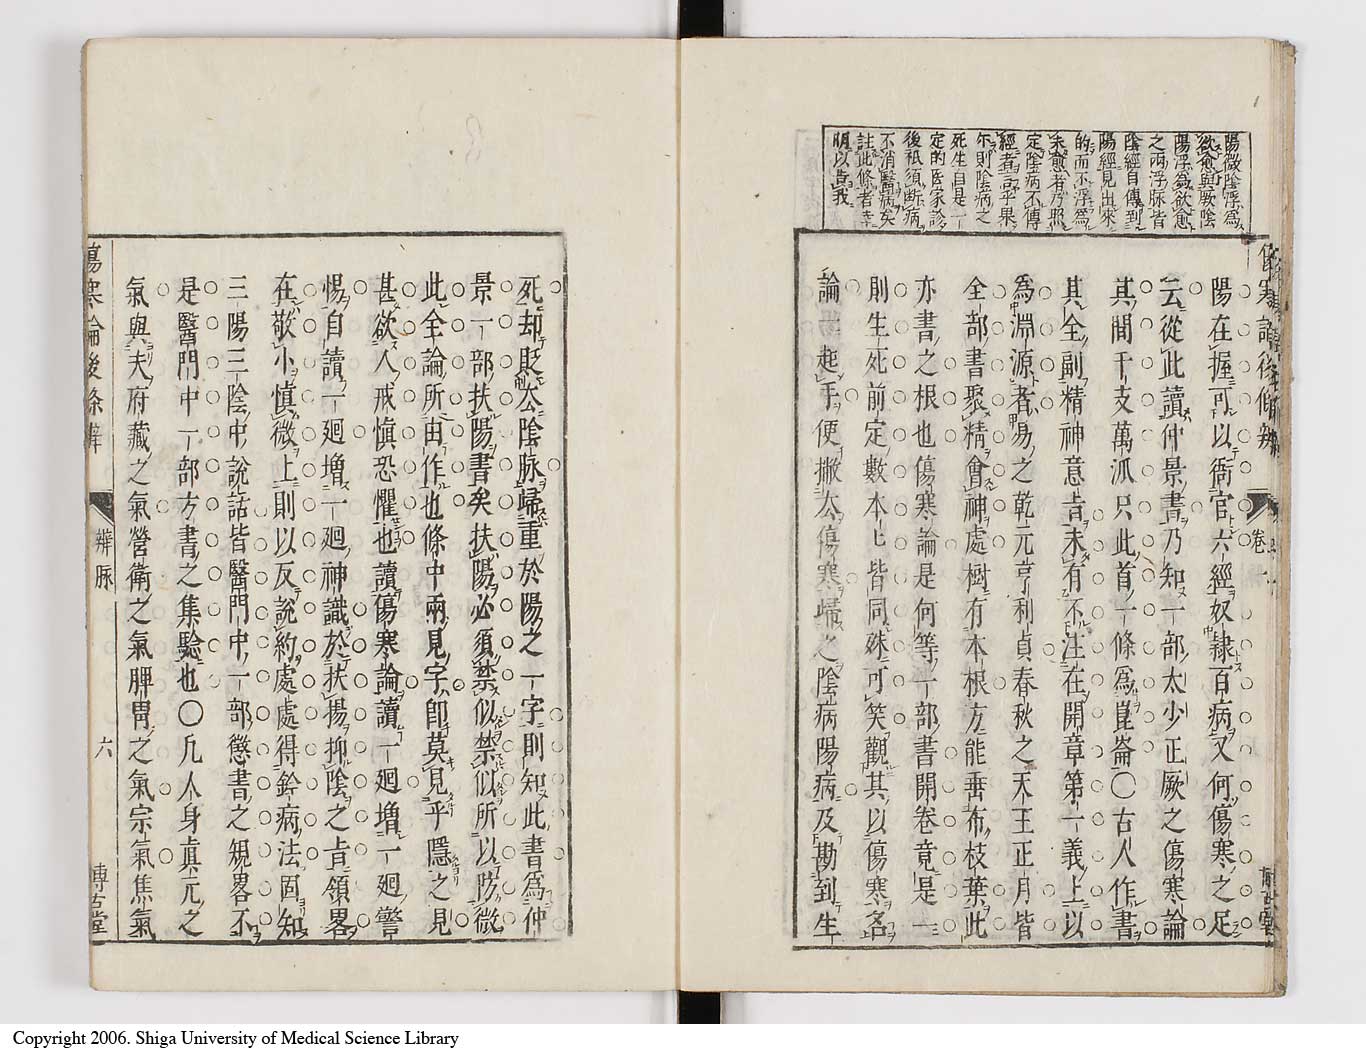 陽微陰浮爲
欲愈與厥陰
陽浮爲欲愈
之兩浮脉皆
陰經自傳到
陽經見出來
的而不浮爲
未愈者乃照
定陰病不傳
經者言乎果
尒則陰病之
死生自是一
定的医家診
後祇須断病
不消醫病矣
註此條者幸
明以告我
陽在握可以衙官六經奴隷百病又何傷寒之足
云從此讀仲景書乃知一部太少正厥之傷寒論
其間千支萬派只此首一條爲崑崙〇古人作書
其全副精神意㫖未有不注在開章第一義上以
為淵源者易之乾元亨利貞春秋之天王正月皆
全部書聚精會神處樹有本根方能垂布枝葉此
亦書之根也傷寒論是何等一部書開卷竟是一
則生死前定數本上皆同殊可笑觀其以傷寒名
論 起手便撇太傷寒歸之陰病陽病及勘到生
死却貶公陰脉歸重於陽之一字則知此書爲仲
景一部扶陽書矣扶陽必須禁似禁似所以防微
此全論所由作也條中兩見字即莫見乎隱之見
甚欲人戒慎恐懼也讀傷寒論讀一廻增一廻警
惕自讀一廻增一廻神識於扶陽抑陰之㫖領畧
在敬小慎微上則以反説約處處得鈐病法固知
三陽三陰中說話皆醫門中一部懲書之規畧不
是醫門中一部方書之集驗也〇凡人身眞元之
氣與夫府藏之氣營衛之氣脾胃之氣宗氣焦氣
傷寒論後條辨
辨脉
六
博古堂